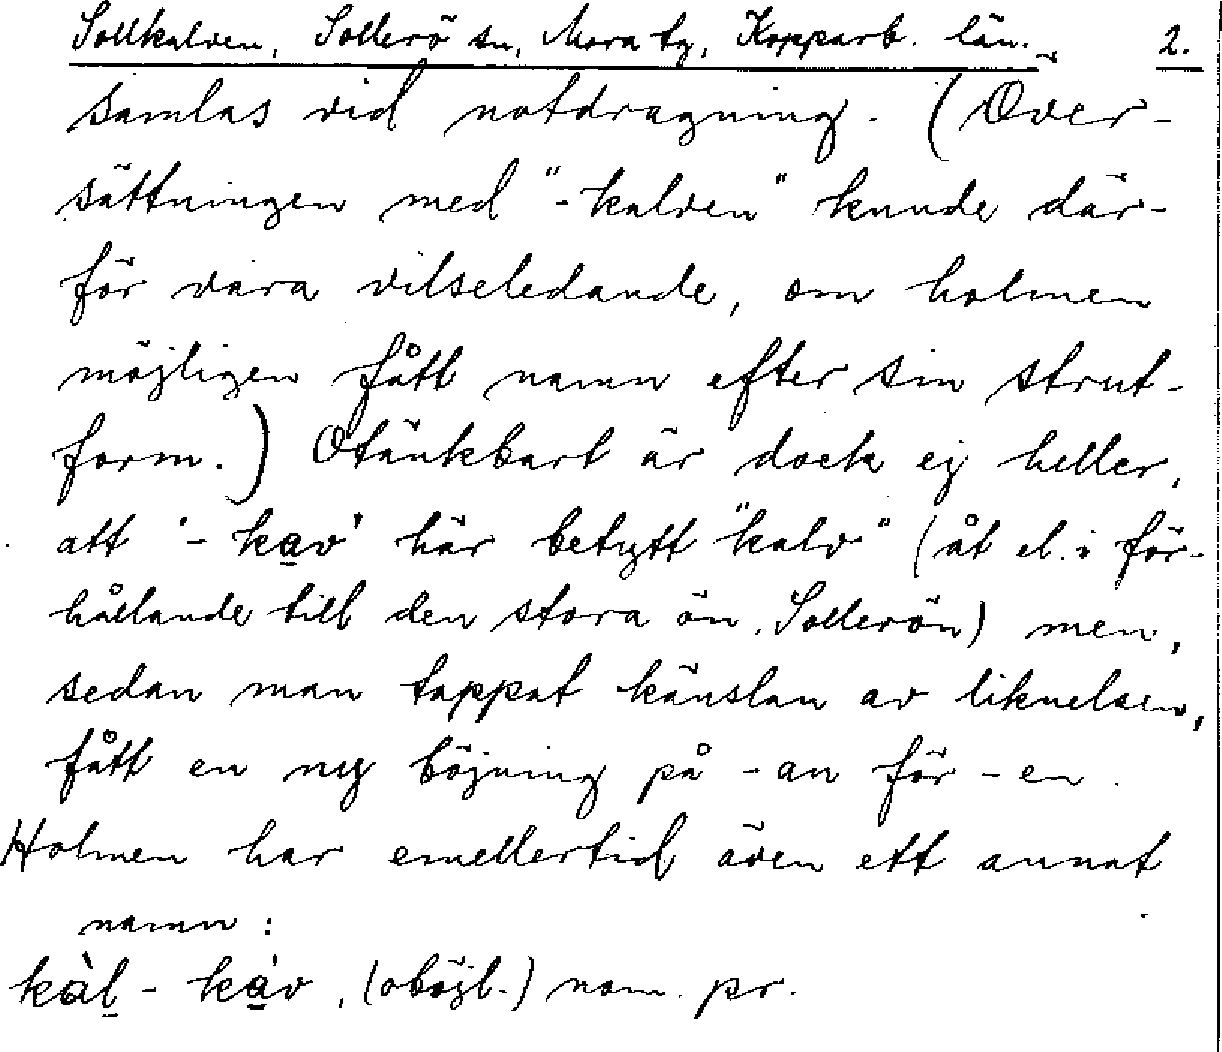 Sollkalven, Sollerö sn, Mora tg, Kopparb. län. 2.
samlas vid notdragning. (Över-
sättningen med "-kalven" kunde där-
för vara vilseledande, om holmen
möjligen fått namn efter sin strut-
form.) Otänkbart är dock ej heller,
att '-kav' här betytt "kalv" (åt el. i för-
hållande till den stora ön, Sollerön) men,
sedan man tappat känslan av liknelsen,
fått en ny böjning på -an för -en.
Holmen har emellertid även ett annat
namn:
kàl-kàv, (oböjl.) nom. pr.